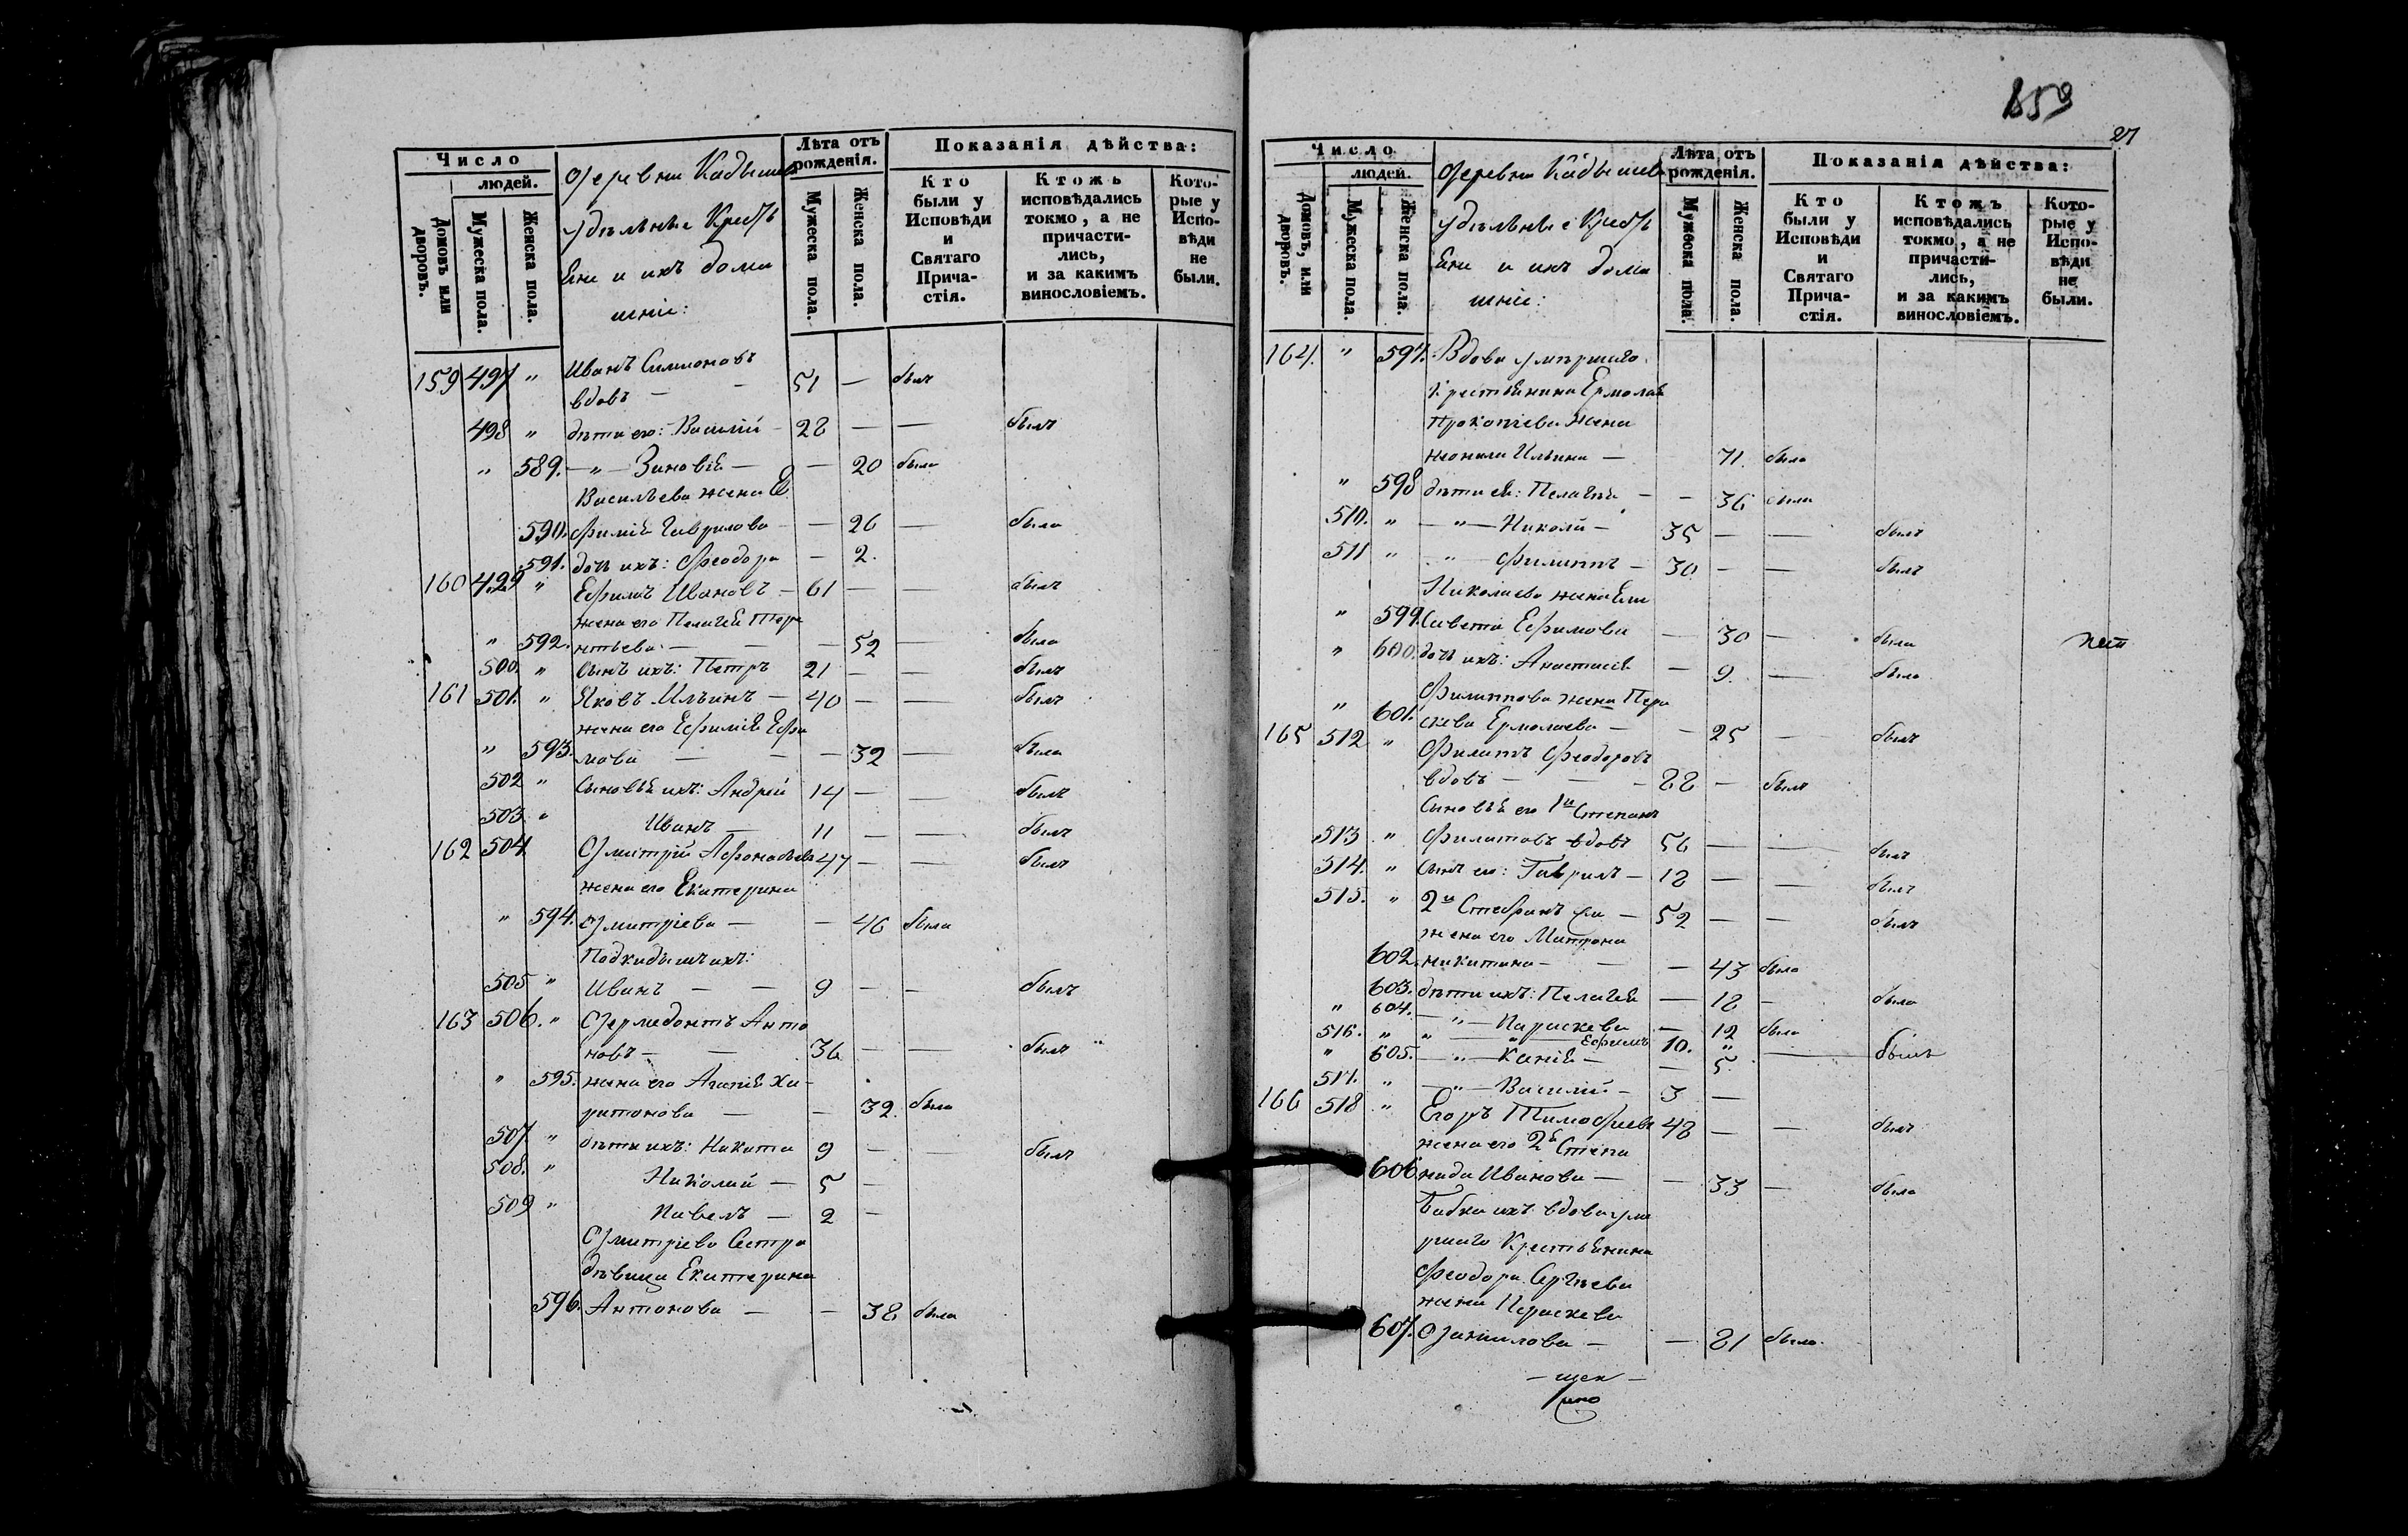 Число
людей.
Домовъ или дворовъ.
Мужеска пола.
Женска пола.
Деревни Кадышева
удѣльные Крестъ
яне и ихъ дома
шніе:
Лѣта отъ рожденія.
Мужеска пола.
Женска пола.
Показанія дѣйства:
Кто были у Исповѣди и Святаго Прича-стія.
Ктожъ исповѣдались токмо, а не причасти-лись, и за какимъ винословіемъ.
Кото-рые у Испо-вѣди не были.
Иванъ Симионовъ
159 497 " вдовъ — 51 — былъ
498 " дѣти его: Василій — 28 — — былъ
" 589. — " — Зиновія — — 20 была
Васильева жена Е
590. фимія Гаврилова — — 26 — была
591. дочь ихъ: Феодора — 2.
160 429 " Ефимъ Ивановъ — 61 — — былъ
жена его Пелагея Тере
" 592. нтьева — — — 52 — была
500. " Сынъ ихъ: Петръ 21 — — былъ
161 501. " Яковъ Ильинъ — 40 — — былъ
жена его Ефимія Ефи
" 593. мова — — — 32 — была
502 " Сыновья ихъ: Андрей 14 — — былъ
503. " Иванъ — 11 — — былъ
162 504 Дмитрій Афонасьевъ 47 — — былъ
жена его Екатерина
" 594. Дмитріева — — 46 была
Подкидышъ ихъ:
505 " Иванъ — — 9 — — былъ
163 506. " Дермидонтъ Анто
новъ — — 36 — — былъ "
" 595. жена его Агапія Ха-
ритонова — — 32. была
507 " дѣти ихъ: Никита 9 — — былъ
508. " Николай — 5 —
509 " Павелъ — 2 —
Дмитріева Сестра
дѣвица Екатерина
596. Антонова — — 38 была
859
27
Число
людей.
Домовъ, или дворовъ.
Мужеска пола.
Женска пола.
Деревни Кадышева
удѣльные Крестъ
яне и ихъ дома
шніе:
Лѣта отъ рожденія.
Мужеска пола.
Женска пола.
Показанія дѣйства:
Кто были у Исповѣди и Святаго Прича-стія.
Ктожъ исповѣдались токмо, а не причасти-лись, и за какимъ винословіемъ.
Кото-рые у Испо-вѣди не были.
164. " 597. Вдова умершаго
Крестьянина Ермолая
Прокопіева жена
Неонила Ильина — 71. была
" 598 дѣти ея: Пелагея — — 36 была
510. " — " — Николай — 35 — — былъ
511 " " — Филиппъ — 30 — — былъ
Николаева жена Ели
" 599. савета Ефимова — 30 — была
" 600. дочь ихъ: Анастасія — 9. — была
Филиппова жена Пара
" 601. скева Ермолаева — — 25 — былъ
165 512 " Филипъ Феодоровъ
вдовъ — — — 88 — былъ
Сыновья его 1й Степанъ
513 " Филиповъ вдовъ 56 — — былъ
514. " Сынъ его: Гаврилъ — 18 — — былъ
515. " 2й Стефанъ — 52 — — былъ
жена его Матрона
602. Никитина — — — 43 была
603. дѣти ихъ: Пелагея — 18 — была
" 604. — " — Параскева — 12 была
516. " " — " — Ефимъ 10. " — былъ
" 605. — " — Ксенія — — 5.
517. " — " — Василій — 3 —
166 518 " Егоръ Тимофеевъ 48 — — былъ
жена его 2я Степа
606 нида Иванова — — 33 — была
Бабка ихъ вдова уме
ршаго Крестьянина
Феодора Сергѣева
жена Параскева
607. Даниилова — — 81 была